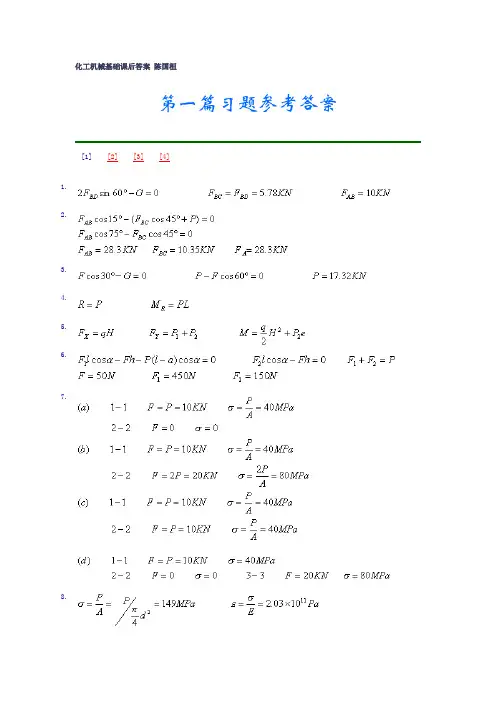 化工机械基础课后答案 陈国桓
第一篇习题参考答案
[1] [2] [3] [4]
1. 2F_{BD} sin 60° − G = 0 F_{BC} = F_{BD} = 5.78KN F_{AB} = 10KN
2. F_{AB} cos15° − (F_{BC} cos 45° + P) = 0
F_{AB} cos75° − F_{BC} cos 45° = 0
F_{AB} = 28.3KN F_{BC} = 10.35KN F_A = 28.3KN
3. F cos30° − G = 0 P − F cos60° = 0 P = 17.32KN
4. R = P M_R = PL
5. F_X = qH F_Y = P_1 + P_2 M = \frac{q}{2} H² + P_2 e
6. F_1 l cosα − Fh − P(l − a) cosα = 0 F_2 l cosα − Fh = 0 F_1 + F_2 = P
F = 50N F_1 = 450N F_1 = 150N
7. (a) 1−1 F = P = 10KN σ = \frac{P}{A} = 40MPa
2−2 F = 0 σ = 0
(b) 1−1 F = P = 10KN σ = \frac{P}{A} = 40MPa
2−2 F = 2P = 20KN σ = \frac{2P}{A} = 80MPa
(c) 1−1 F = P = 10KN σ = \frac{P}{A} = 40MPa
2−2 F = P = 10KN σ = \frac{P}{A} = 40MPa
(d) 1−1 F = P = 10KN σ = 40MPa
2−2 F = 0 σ = 0 3−3 F = 20KN σ = 80MPa
8. σ = \frac{P}{A} = P / \frac{π}{4} d² = 149MPa ε = \frac{σ}{E} = 2.03×10^{11} Pa